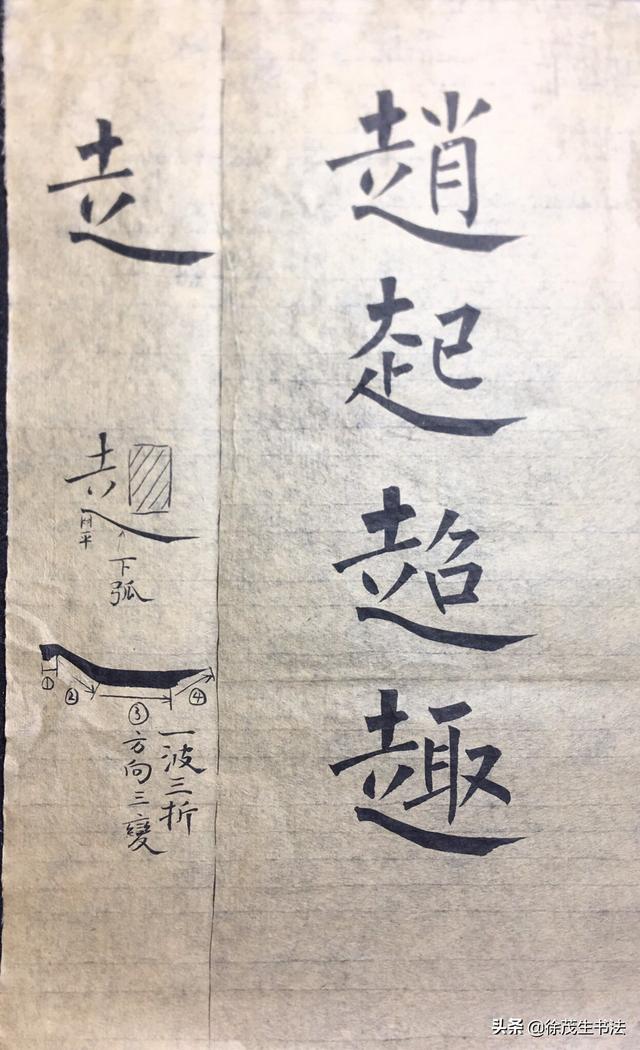 趙起超趣
走
走
平
下弧
①②③④
一波三折
方向三變
头条 @徐茂生书法